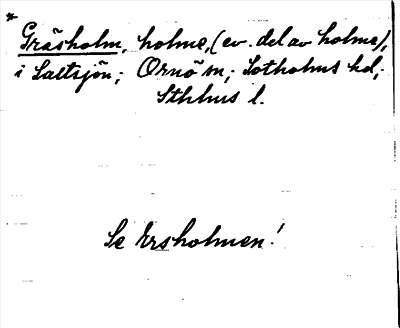 * Gräsholm, holme, (ev. del av holme),
i Saltsjön; Ornö sn; Sotholms hd;
Sthlms l.
Se Ersholmen!